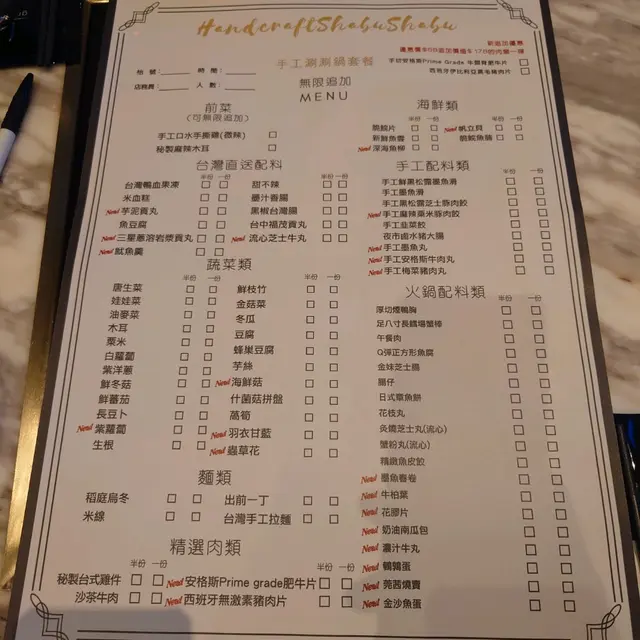 HandcraftShabuShabu
手工涮涮鍋套餐
無限追加
MENU
新追加優惠
手切安格斯Prime Grade 牛頸脊肥牛片
西班牙伊比利亞黑毛豬肉片
枱號: 時間:
店務員: 人數:
前菜
(可無限追加)
手工口水手撕雞(微辣)
秘製麻辣木耳
台灣直送配料
半份 一份 半份 一份
台灣鴨血果凍 甜不辣
米血糕 墨汁香腸
New! 芋泥貢丸 黑椒台灣腸
魚豆腐 台中福茂貢丸
New! 三星蔥溶岩漿貢丸 New! 流心芝士牛丸
New! 魷魚羹
蔬菜類
半份 一份 半份 一份
唐生菜 鮮枝竹
娃娃菜 金菇菜
油麥菜 冬瓜
木耳 豆腐
粟米 蜂巢豆腐
白蘿蔔 芋絲
紫洋蔥 New! 海鮮菇
鮮冬菇 什菌菇拼盤
鮮蕃茄 萵筍
長豆卜 New! 羽衣甘藍
New! 紫蘿蔔 New! 蟲草花
生根
麵類
稻庭烏冬 出前一丁
米線 台灣手工拉麵
精選肉類
半份 一份 半份 一份
秘製台式雞件 New! 安格斯Prime grade肥牛片
沙茶牛肉 New! 西班牙無激素豬肉片
海鮮類
半份 一份 半份 一份
脆鯇片 New! 帆立貝
新鮮魚雲 脆鯇魚腩
New! 深海魚柳
手工配料類
半份 一份
手工鮮黑松露墨魚滑
手工墨魚滑
手工黑松露芝士豚肉餃
New! 手工麻辣粟米豚肉餃
手工韭菜餃
夜市鹵水豬大腸
New! 手工墨魚丸
New! 手工安格斯牛肉丸
New! 手工梅菜豬肉丸
火鍋配料類
半份 一份
厚切煙鴨胸
足八寸長鱈場蟹棒
午餐肉
Q彈正方形魚腐
金妹芝士腸
腸仔
日式章魚餅
花枝丸
灸燒芝士丸(流心)
蟹粉丸(流心)
精緻魚皮餃
New! 墨魚春卷
New! 牛柏葉
New! 花膠片
New! 奶油南瓜包
New! 瀨汁牛丸
New! 鵪鶉蛋
New! 莞茜燒賣
New! 金沙魚蛋